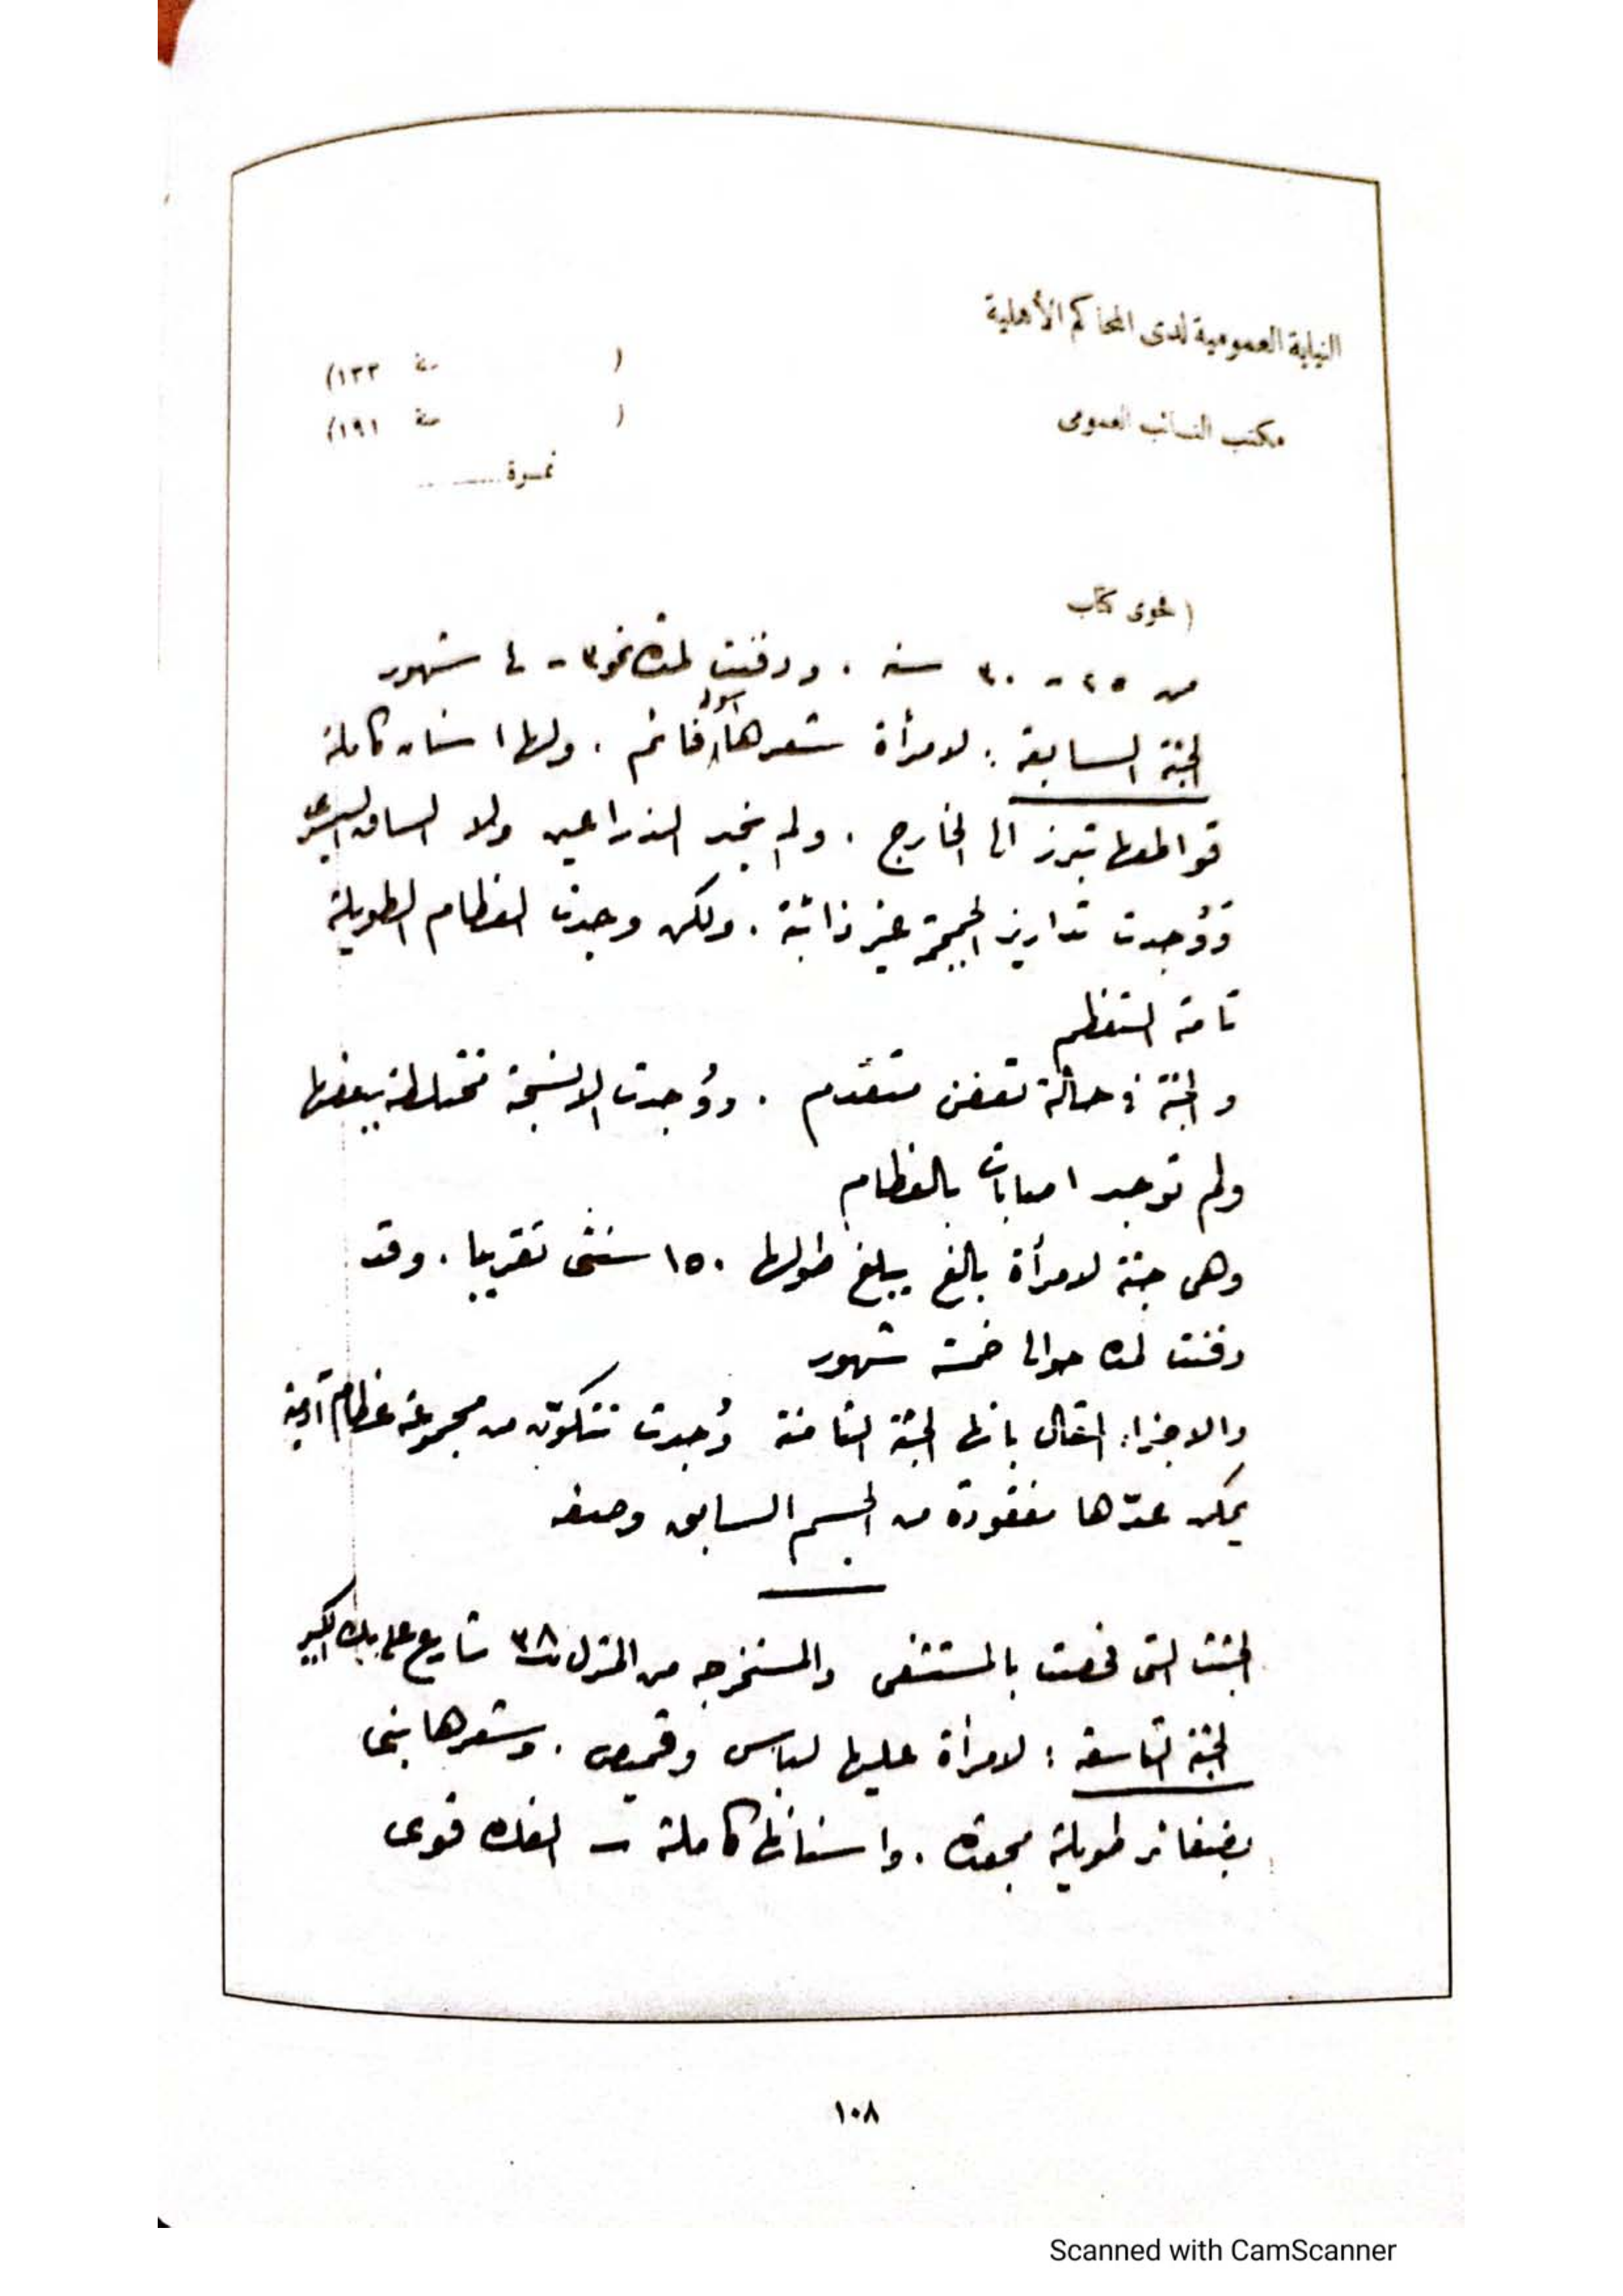 النيابة العمومية لدى المحاكم الأهلية
( سنة ١٣٣)
مكتب النائب العمومى
( سنة ١٩١)
نمرة
( فحوى كتاب
من ٢٥ - ٣٠ سنه . ودفنت لمدة نحو ٣ - ٤ شهور
الجثة السابعة : لامرأة شعرها اسود فاتم . ولها اسنان كاملة
قواطعها تبرز الى الخارج . ولم نجد الذراعين ولا الساق اليسرى
ووُجدت تداريز الجمجمة غير ذائبة . ولكن وجدت العظام الطويلة
تامة التعظم
والجثة فى حالة تعفن متقدم . ووُجدت الانسجة مختلطة ببعضها
ولم توجد اصابات بالعظام
وهى جثة لامرأة بالغ يبلغ طولها ١٥٠ سنتى تقريبا . وقد
دفنت لمدة حوالى خمسة شهور
والاجزاء المقال بانها الجثة الثامنة وُجدت تتكوّن من مجموعة عظام آدمية
يمكن عدّها مفقودة من الجسم السابق وصفه
الجثث التى فحصت بالمستشفى والمستخرجه من المنزل نمرة ٣٨ شارع على بك الكبير
الجثة التاسعة : لامرأة عليها لباس وقميص . وشعرها بنى
بضفائر طويلة مجعده . واسنانها كاملة - الفك قوى
١٠٨
Scanned with CamScanner